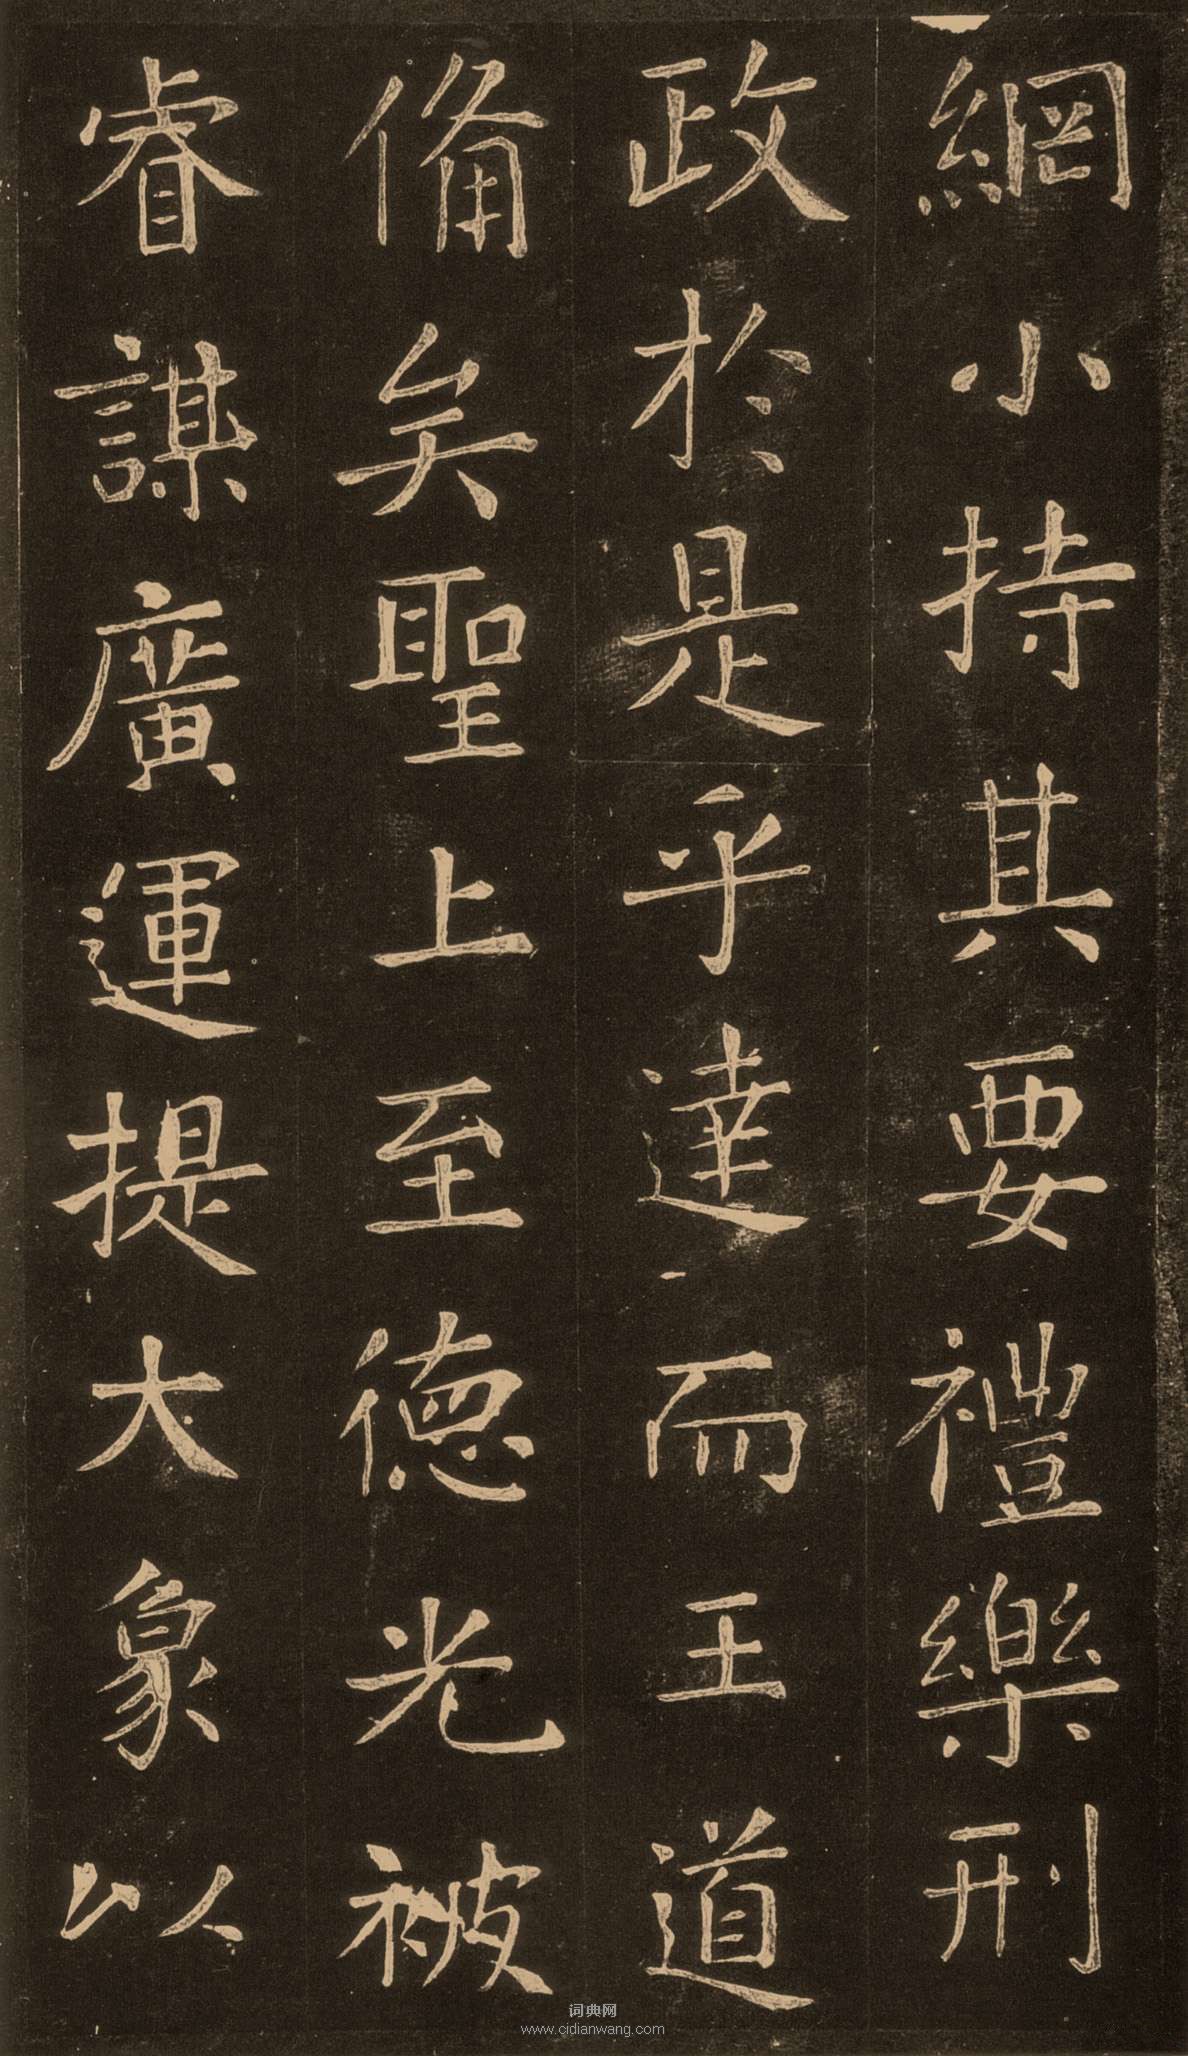 網小持其要禮樂刑
政於是乎達而王道
備矣聖上至德光被
睿謀廣運提大象以
词典网
www.cidianwang.com